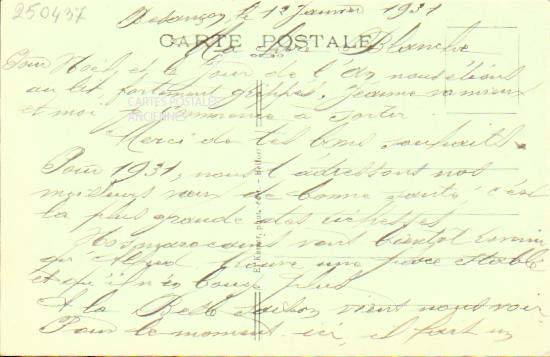 250437
Besançon, le 13 Janvier 1931
CARTE POSTALE
Ma chère Blanche
Pour Noël et le Jour de l'An nous étions
au lit fortement grippés. Jeanne va mieux
et moi je commence à sortir
CARTES POSTALES
ANCIENNES
Merci de tes bons souhaits.
Pour 1931, nous t'adressons nos
meilleurs vœux de bonne santé, c'est
la plus grande des richesses
vont bientôt
qu'Alfred trouve une place stable
et qu'il n'en bouge plus
A la Belle saison vient nous voir
Pour le moment ici, il fait un